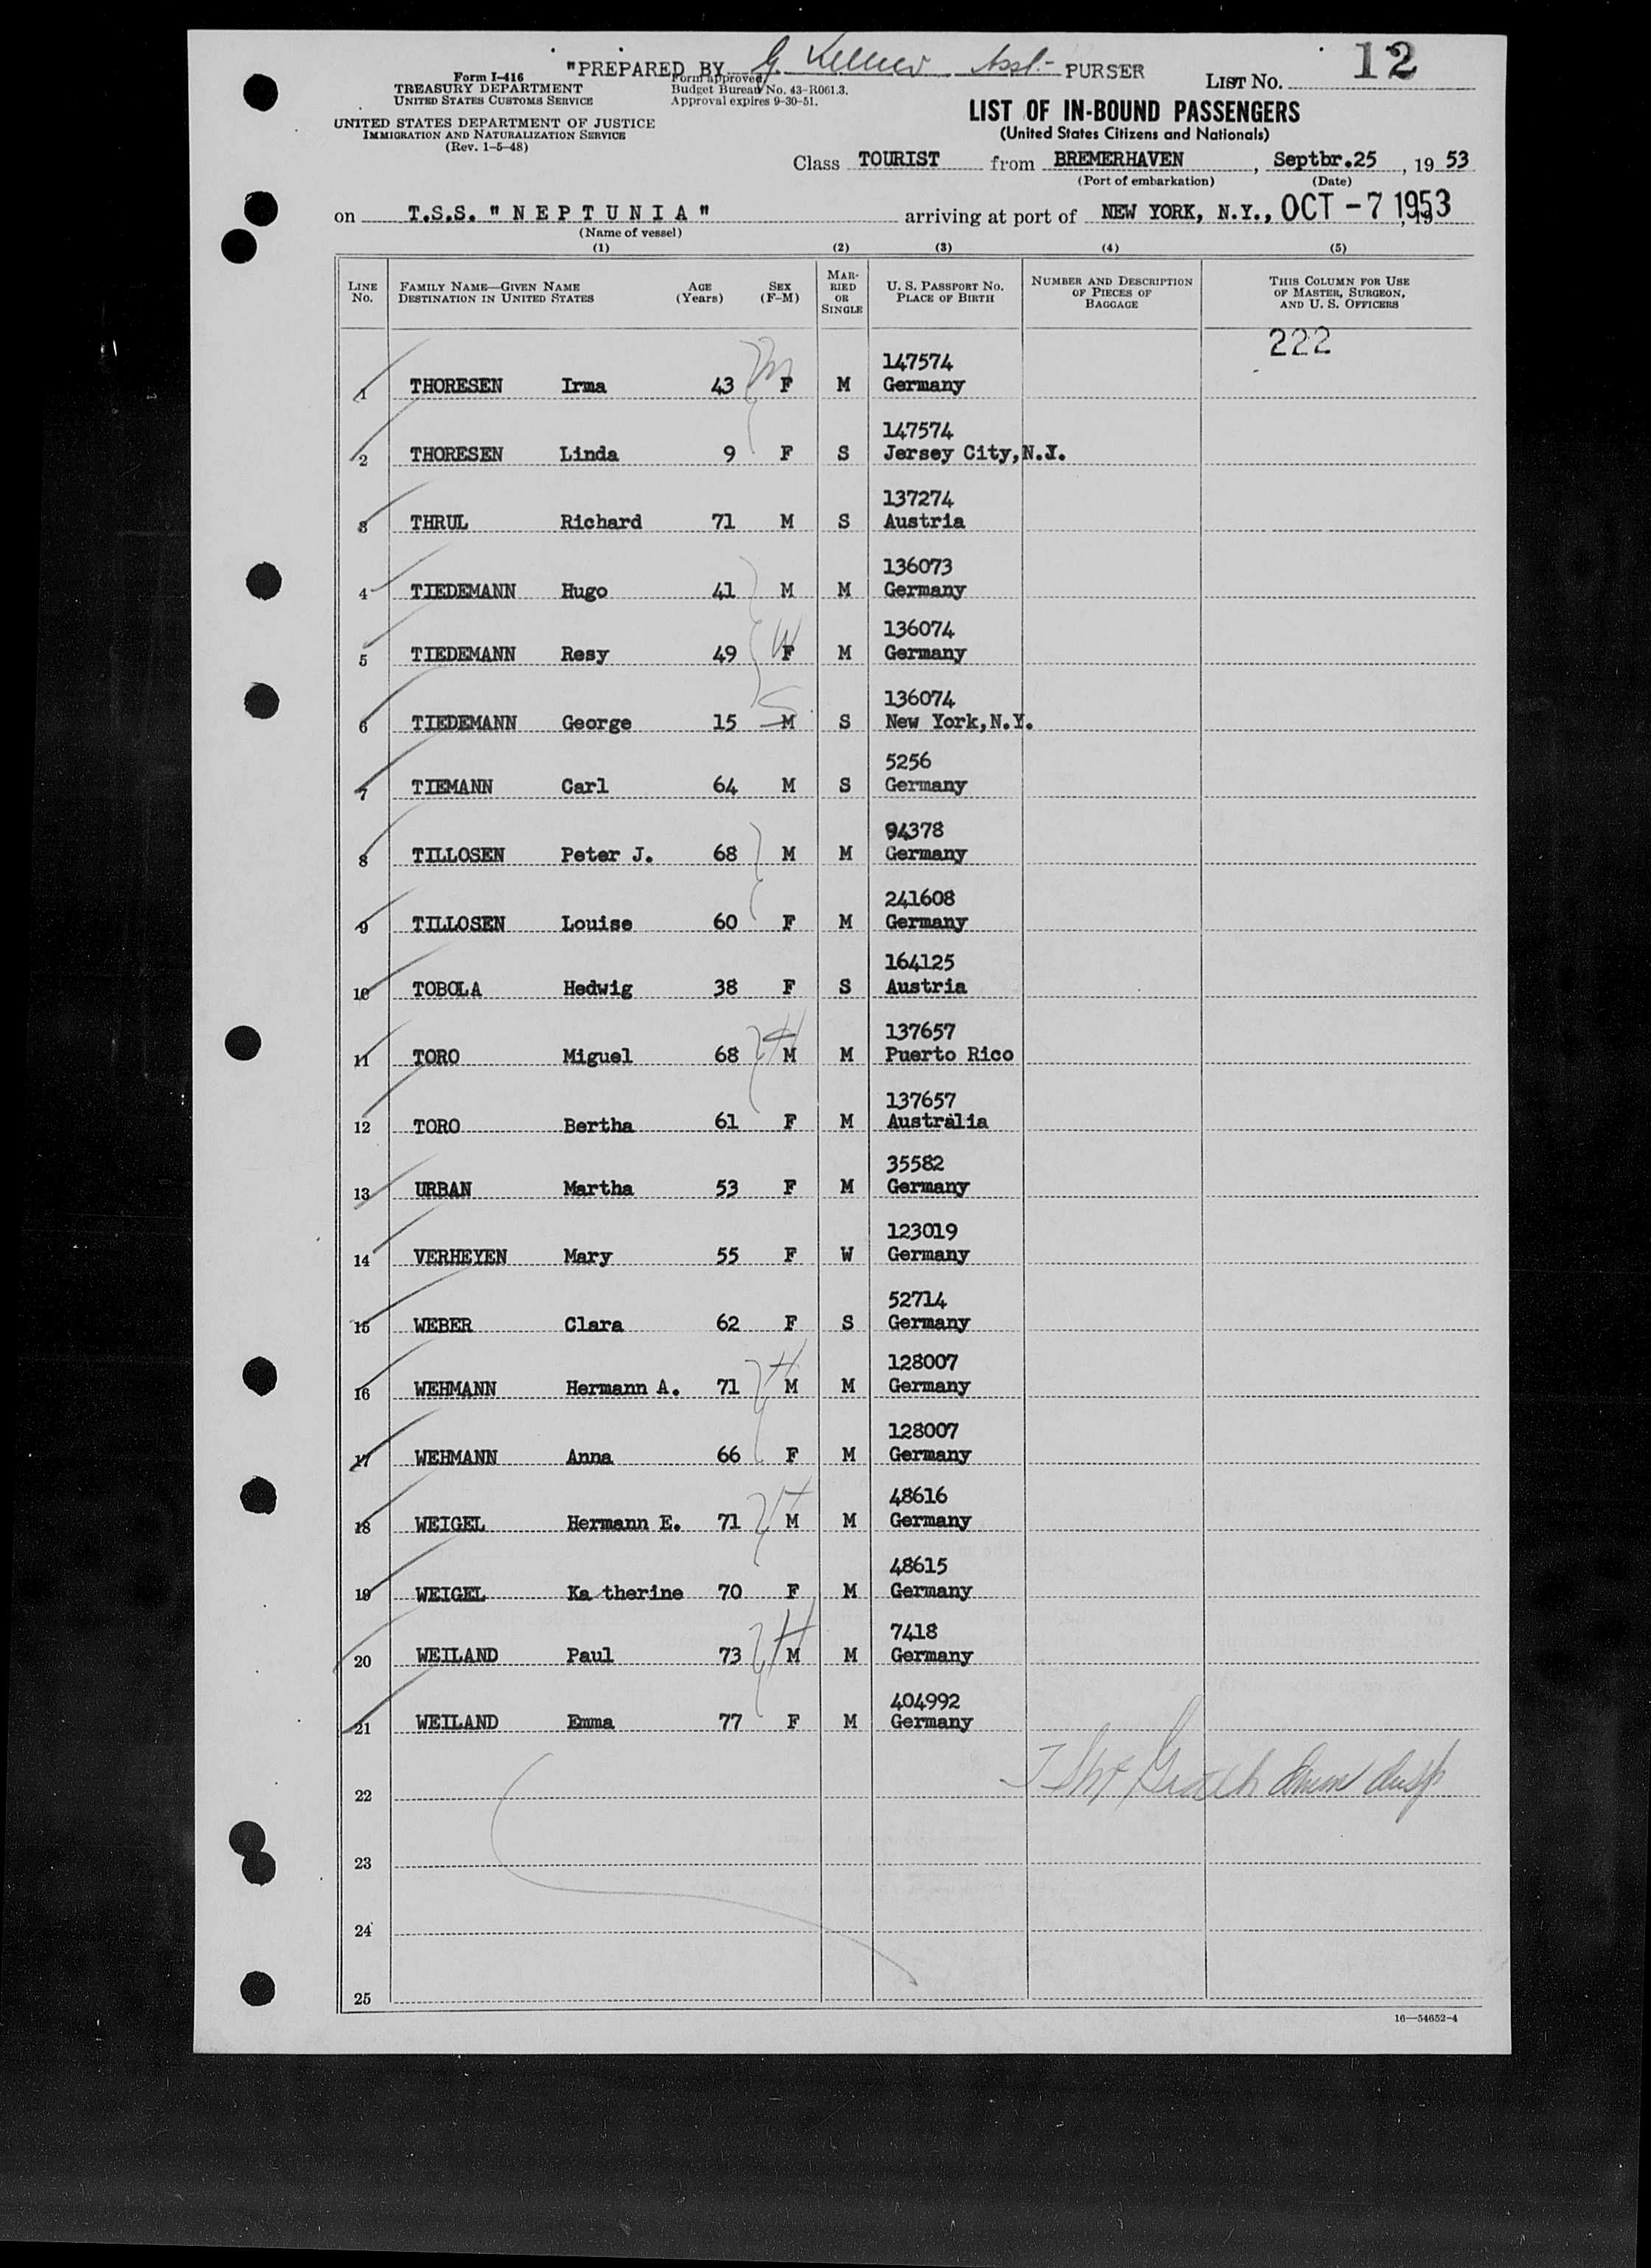 "PREPARED BY G. Kellner Asst.- PURSER
List No. 12
Form I-416
TREASURY DEPARTMENT
United States Customs Service
UNITED STATES DEPARTMENT OF JUSTICE
Immigration and Naturalization Service
(Rev. 1-5-48)
Form approved
Budget Bureau No. 43-R061.3.
Approval expires 9-30-51.
LIST OF IN-BOUND PASSENGERS
(United States Citizens and Nationals)
Class TOURIST from BREMERHAVEN, Septbr.25, 19 53
(Port of embarkation) (Date)
on T.S.S. " N E P T U N I A " arriving at port of NEW YORK, N.Y., OCT -7 1953, 19
(Name of vessel)
(1) (2) (3) (4) (5)
Line No. Family Name—Given Name Destination in United States Age (Years) Sex (F-M) Married or Single U. S. Passport No. Place of Birth Number and Description of Pieces of Baggage This Column for Use of Master, Surgeon, and U. S. Officers
222
147574
1 THORESEN Irma 43 F M Germany
147574
2 THORESEN Linda 9 F S Jersey City,N.J.
137274
3 THRUL Richard 71 M S Austria
136073
4 TIEDEMANN Hugo 41 M M Germany
136074
5 TIEDEMANN Resy 49 W F M Germany
136074
6 TIEDEMANN George 15 S M S New York,N.Y.
5256
7 TIEMANN Carl 64 M S Germany
94378
8 TILLOSEN Peter J. 68 M M Germany
241608
9 TILLOSEN Louise 60 F M Germany
164125
10 TOBOLA Hedwig 38 F S Austria
137657
11 TORO Miguel 68 H M M Puerto Rico
137657
12 TORO Bertha 61 F M Australia
35582
13 URBAN Martha 53 F M Germany
123019
14 VERHEYEN Mary 55 F W Germany
52714
15 WEBER Clara 62 F S Germany
128007
16 WEHMANN Hermann A. 71 H M M Germany
128007
17 WEHMANN Anna 66 F M Germany
48616
18 WEIGEL Hermann E. 71 H M M Germany
48615
19 WEIGEL Ka therine 70 F M Germany
7418
20 WEILAND Paul 73 H M M Germany
404992
21 WEILAND Emma 77 F M Germany
22
23
24
25
16—54652-4